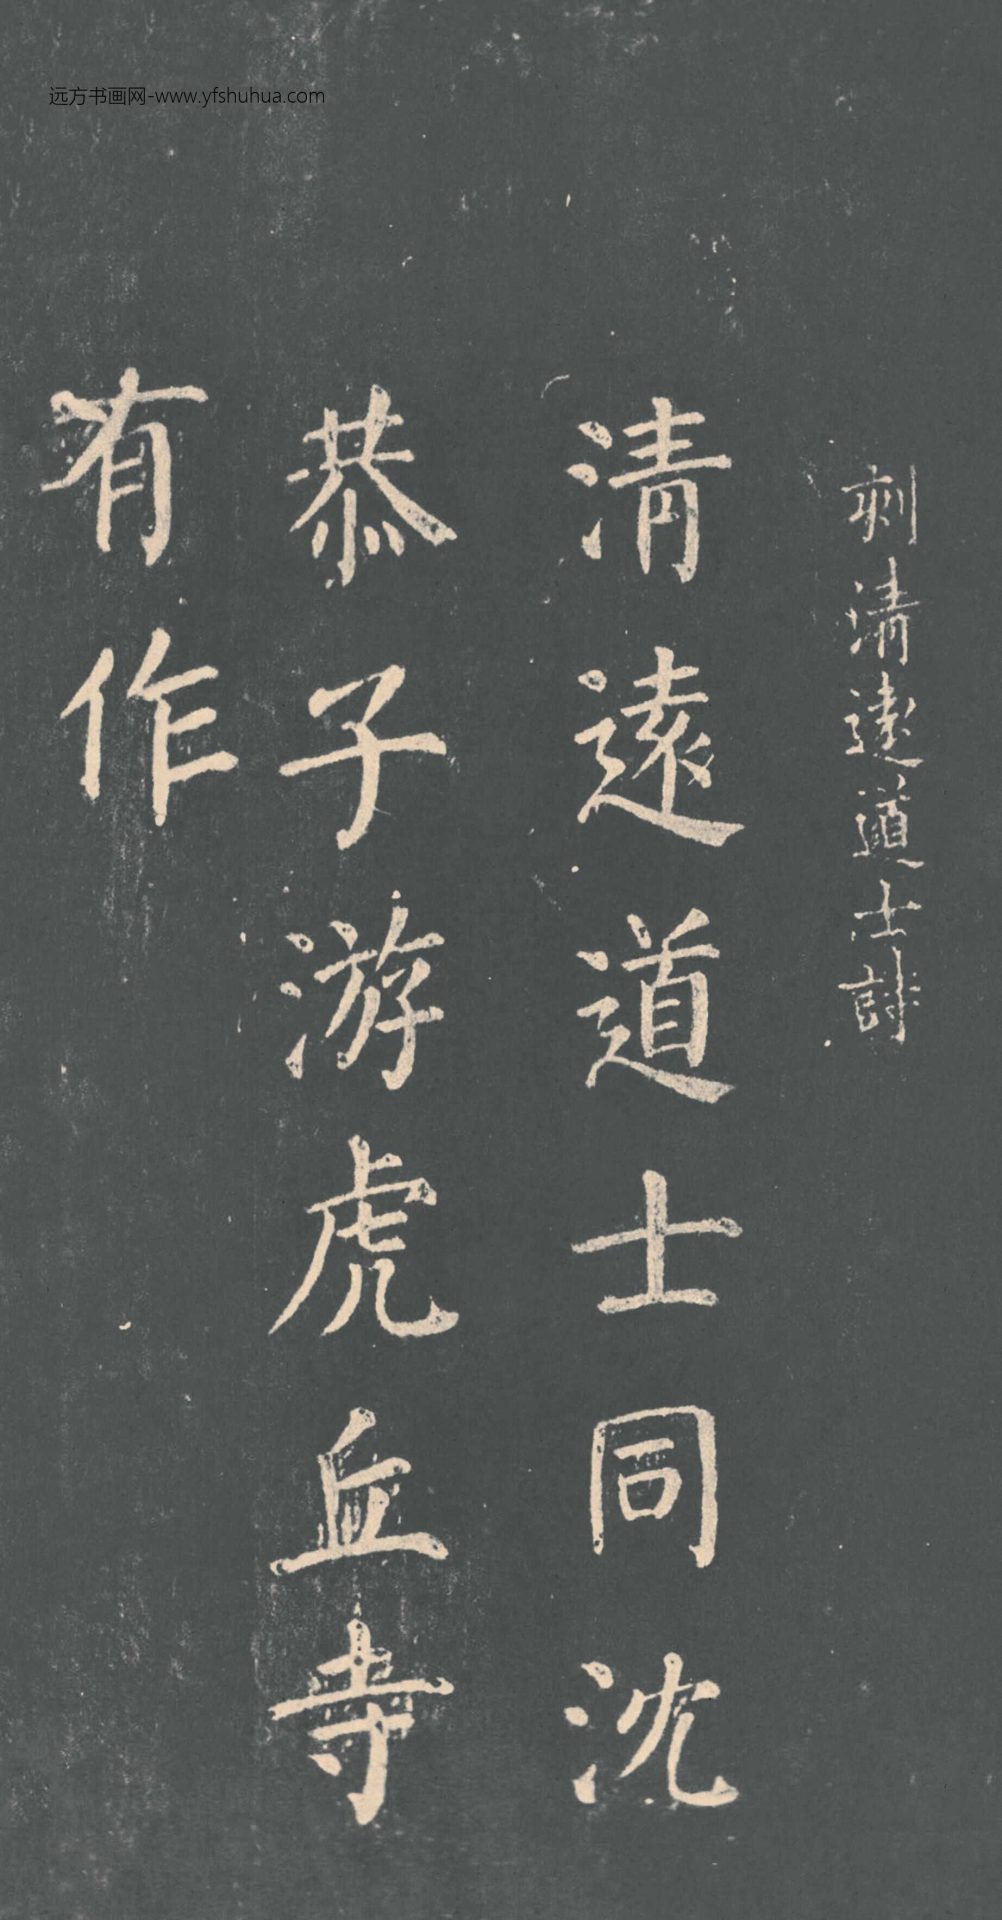 远方书画网-www.yfshuhua.com
刻清遠道士詩
清遠道士同沈
恭子游虎丘寺
有作